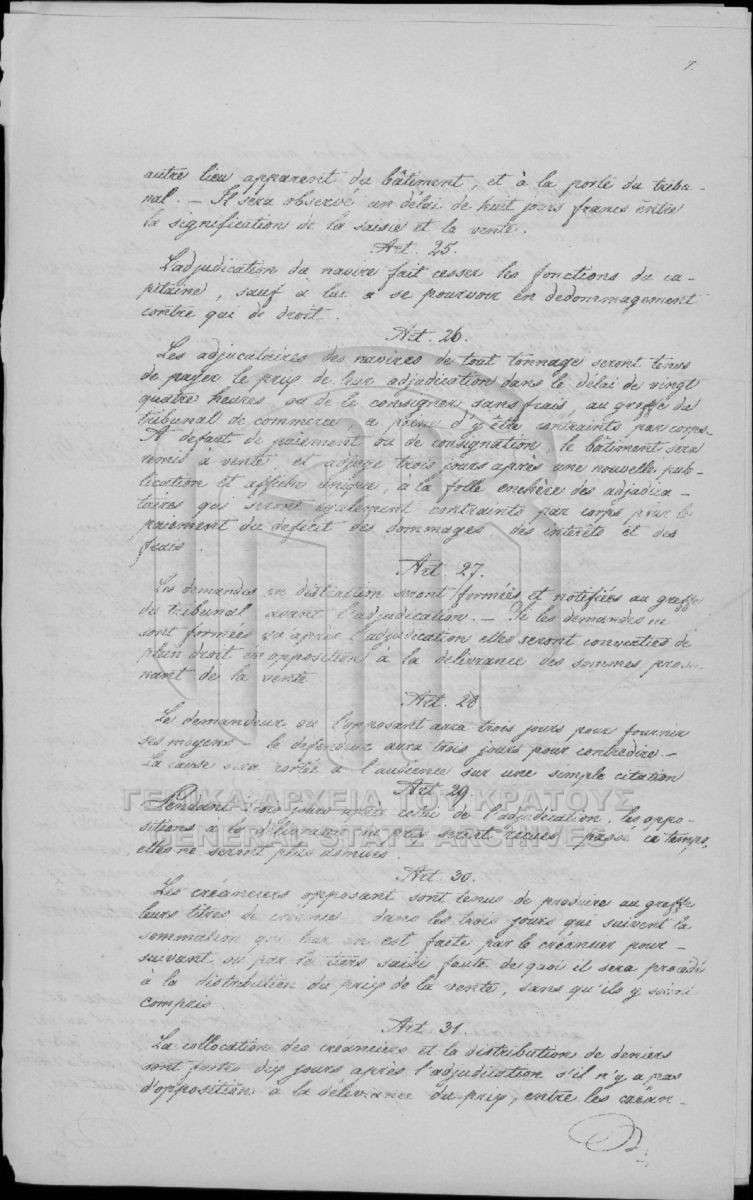 7.
autre lieu apparent du bâtiment, et à la porte du tribu-
nal. — Il sera observé un délai de huit jours francs entre
la signification de la saisie et la vente.
Art. 25.
L'adjudication du navire fait cesser les fonctions du ca-
pitaine, sauf a lui a se pourvoir en dedommagement
contre qui de droit.
Art. 26.
Les adjucataires des navires de tout tonnage seront tenus
de payer le prix de leur adjudication dans le délai de vingt
quatre heures ou de le consigner sans frais, au greffe du
tribunal de commerce a peine d'y être contraints par corps.
A defaut de paiement ou de consignation, le bâtiment sera
remis à vente, et adjugé trois jours après une nouvelle pub-
lication et affiche unique, à la folle enchère des adjudica-
taires qui seront également contraints par corps pour le
paiement du deficit des dommages des intérêts et des
frais.
Art. 27.
Les demandes en distraction seront formées et notifiées au greffe
du tribunal avant l'adjudication. — Si les demandes ne
sont formées qu'après l'adjudication elles seront converties de
plein droit en opposition à la délivrance des sommes prove-
nant de la vente
Art. 28
Le demandeur ou l'opposant aura trois jours pour fournir
ses moyens le defendeur aura trois jours pour contredire. —
La cause sera portée a l'audience sur une simple citation
Art. 29
ΓΕΝΙΚΑ ΑΡΧΕΙΑ ΤΟΥ ΚΡΑΤΟΥΣ
Pendant trois jours après celui de l'adjudication, les oppo-
GENERAL STATE ARCHIVES
sitions à la délivrance du prix seront reçues passé ce temps,
elles ne seront plus admises.
Art. 30.
Les créanciers opposant sont tenus de produire au greffe
leurs titres de créance dans les trois jours qui suivent la
sommation qui leur en est faite par le créancier pour-
suivant ou par le tiers saisi faute de quoi il sera procédé
à la distribution du prix de la vente, sans qu'ils y soient
compris.
Art. 31.
La collocation des creanciers et la distribution de deniers
sont faites dix jours après l'adjudication s'il n'y a pas
d'opposition à la délivrance du prix, entre les créan-